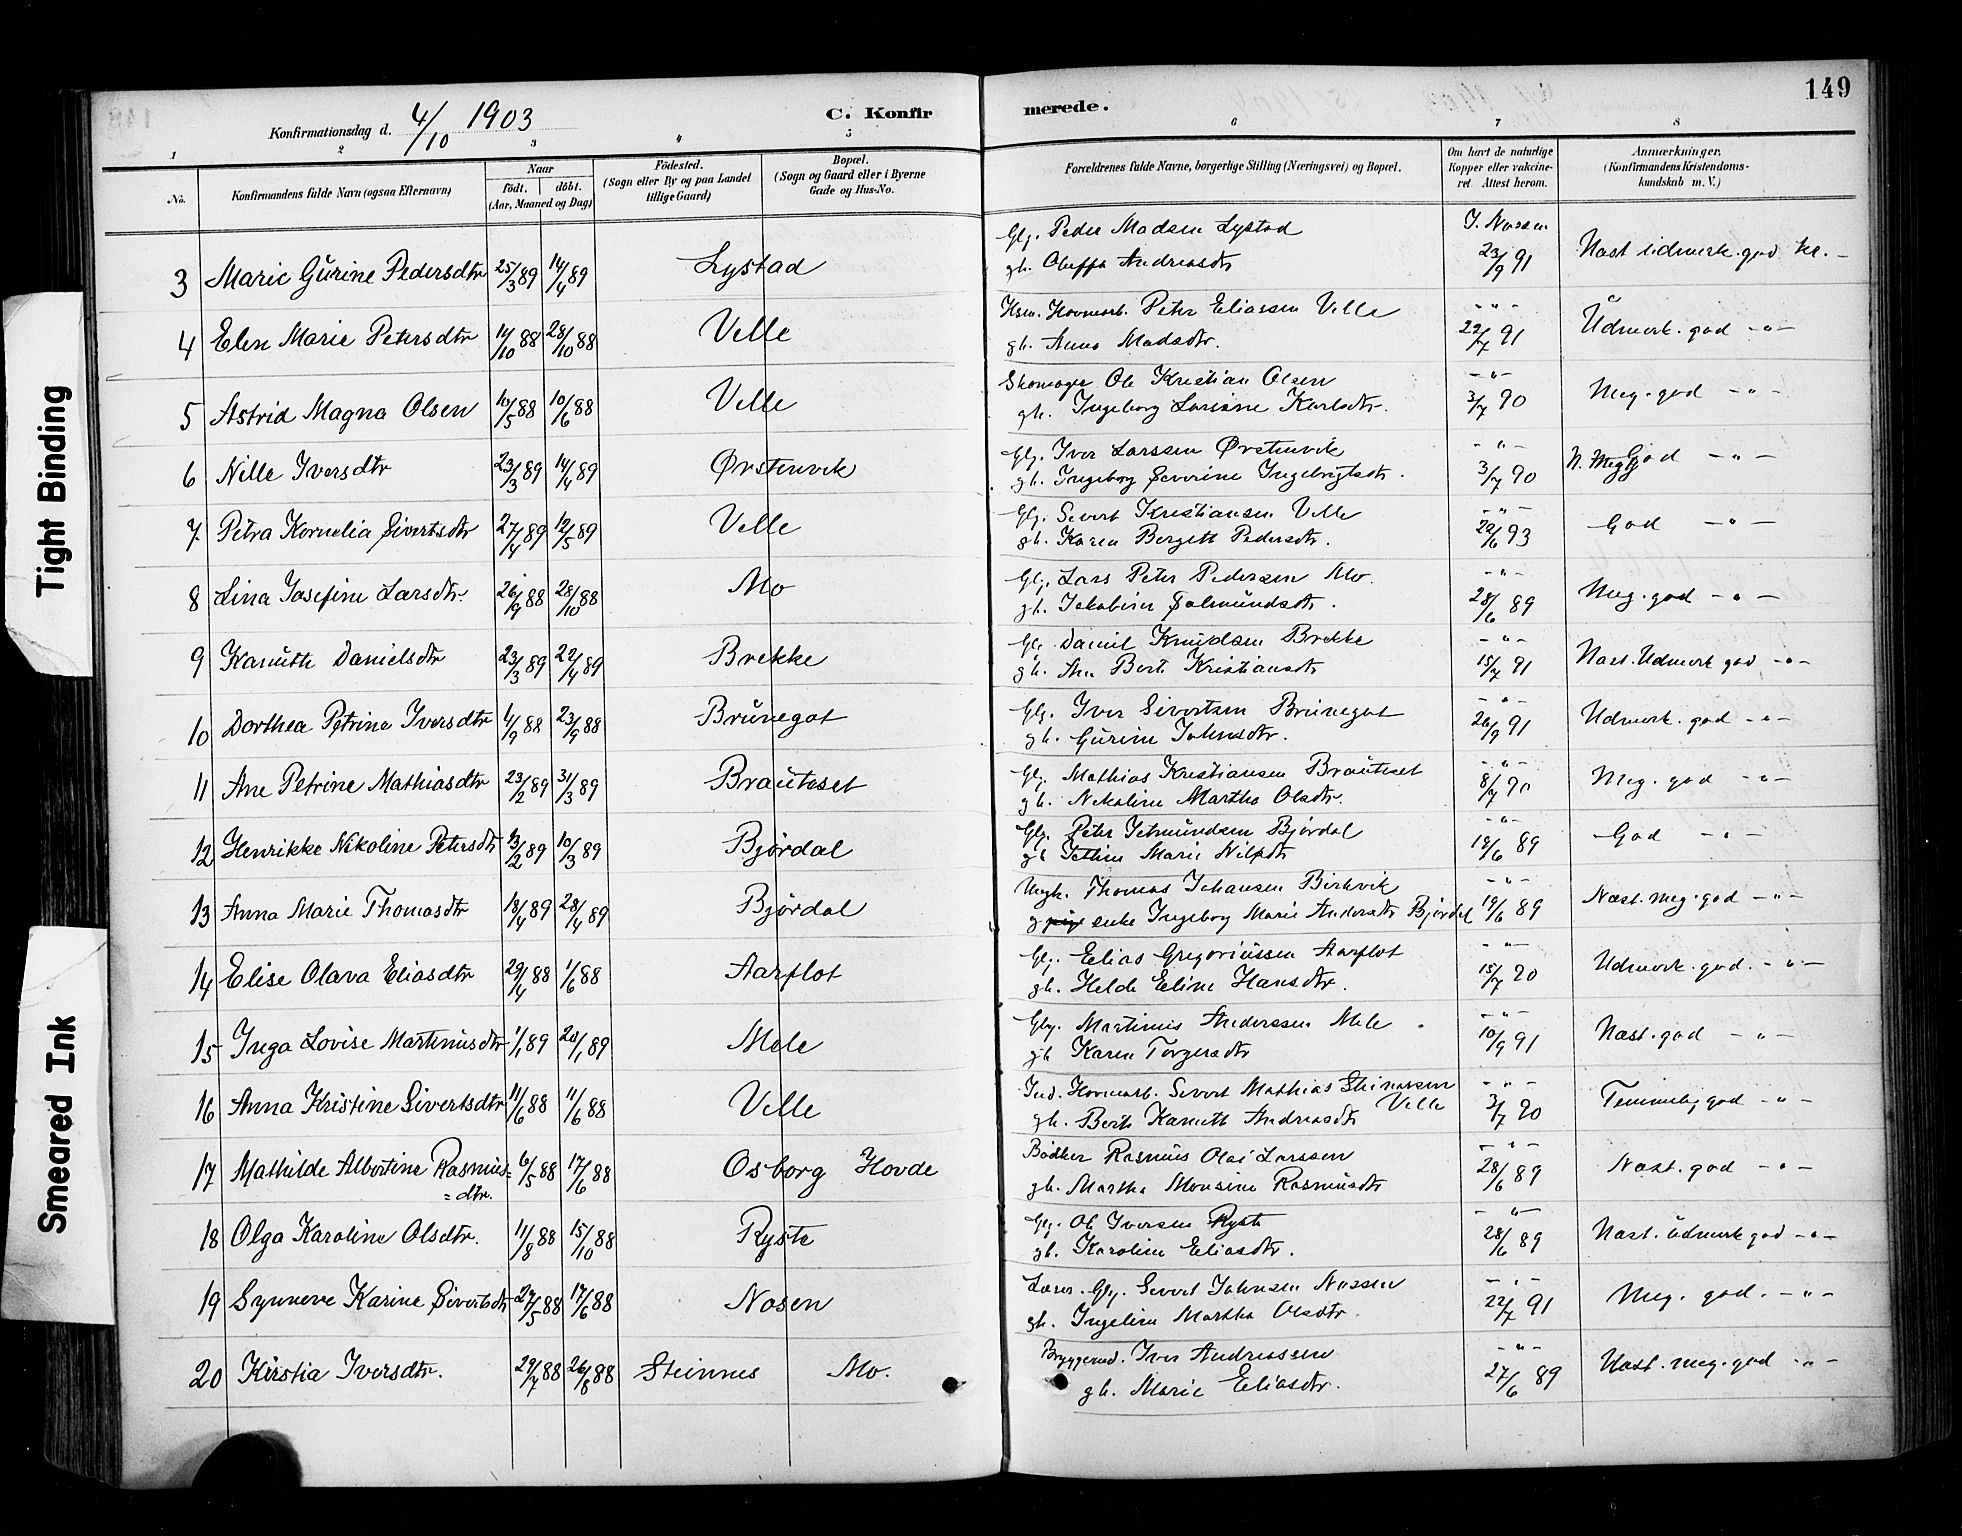 149
Konfirmationsdag d. 4/10 1903
C. Konfirmerede.
1 2 3 4 5 6 7 8
No. Konfirmandens fulde Navn (ogsaa Efternavn) Naar født. døbt. (Aar, Maaned og Dag) Fødested. (Sogn eller By og paa Landet tillige Gaard) Bopæl. (Sogn og Gaard eller i Byerne Gade og Hus-No. Forældrenes fulde Navne, borgerlige Stilling (Næringsvei) og Bopæl. Om havt de naturlige Kopper eller vakcineret. Attest herom. Anmærkninger, (Konfirmandens Kristendomskundskab m. V.)
3 Marie Gurine Pedersdtr 25/3 89 14/4 89 Lystad Gbr. Peder Madsen Lystad
gh. Oluffa Andreasdtr J. Nossen 23/9 91 Næst udmerk. god kr. -
4 Elen Marie Petersdtr 14/10 88 28/10 88 Velle Hsm. Havnearb. Peter Eliassen Velle
gh. Anna Madsdtr. - " - 22/7 91 Udmerk. god - " -
5 Astrid Magna Olsen 10/5 88 10/6 88 Velle Skomager Ole Kristian Olsen
gh. Ingeborg Larsine Karlsdtr. - " - 3/7 90 Meg. god - " -
6 Nille Iversdtr 23/3 89 14/4 89 Ørstenvik Gbr. Iver Larssen Ørstenvik
gh. Ingeborg Severine Ingebrigtsdtr. - " - 3/7 90 N. Meg God - " -
7 Petra Kornelia Sivertsdtr 27/4 89 12/5 89 Velle Gbr. Severt Kristiansen Velle
gh. Karen Bergitt Pedersdtr. - " - 22/6 93 God - " -
8 Lina Josefine Larsdtr. 26/9 88 28/10 88 Mo Gbr. Lars Peter Pedersen Mo.
gh. Jakobine Salmundsdtr. - " - 28/6 89 Meg. god - " -
9 Kanutte Danielsdtr 23/3 89 22/4 89 Brekke Gbr. Daniel Knudsen Brekke
gh. Ane Berte Kristiansdtr - " - 15/7 91 Næst. Udmerk god - " -
10 Dorthea Petrine Iversdtr 4/9 88 23/9 88 Brunegot Gbr. Iver Sivertsen Brunegot
gh. Gurine Johnsdtr. - " - 26/9 91 Udmerk. god - " -
11 Ane Petrine Mathiasdtr 23/2 89 31/3 89 Brautaset Gbr. Mathias Kristiansen Brautaset
gh. Nekoline Martha Olsdtr. - " - 8/7 90 Meg. god - " -
12 Henrikke Nikoline Petersdtr 13/2 89 10/3 89 Bjørdal Gbr. Peter Jetmundsen Bjørdal
gh Jethine Marie Nilsdtr - " - 19/6 89 God - " -
13 Anna Marie Thomasdtr 18/4 89 28/4 89 Bjørdal Ungk. Thomas Johansen Birkvik
g pige enke Ingeborg Marie Andersdtr Bjørdal - " - 19/6 89 Næst. meg. god - " -
14 Elise Olava Eliasdtr 29/4 88 1/6 88 Aarflot Gbr. Elias Gregoriussen Aarflot
gh. Helde Eline Hansdtr. - " - 15/7 90 Udmerk. god. - " -
15 Inga Lovise Martinusdtr 1/1 89 20/1 89 Mele Gbr. Martinus Anderssen Mele
gh Karen Torgersdtr - " - 10/9 91 Næst. god - " -
16 Anna Kristine Sivertsdtr 11/6 88 11/6 88 Velle Ind. Havnearb. Severt Mathias Steinassen
gh. Berte Kanutte Andreasdtr Velle - " - 3/7 90 Temmelig god - " -
17 Mathilde Albertine Rasmus=
=dtr. 6/5 88 17/6 88 Osborg Hovde Bødker Rasmus Olai Larssen
gh. Martha Monsine Rasmusdtr - " - 28/6 89 Næst. god - " -
18 Olga Karoline Olsdtr. 11/8 88 15/10 88 Ryste Gbr. Ole Iversen Ryste
gh. Karoline Eliasdtr. - " - 28/6 89 Næst. udmerk god - " -
19 Synneve Karine Sivertsdtr 27/5 88 17/6 88 Nosen Lærer. Gbr. Severt Johnsen Nossen
gh. Ingeline Martha Olsdtr. - " - 22/7 91 Meg. god. - " -
20 Kirstia Iversdtr. 29/7 88 26/8 88 Steinnes Mo. Iver Andreassen
gh. Marie Eliasdtr. - " - 27/6 89 Næst. meg. god - " -
Tight Binding
Smeared Ink